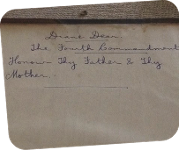 Deane Dear
The Fourth Commandment
Honour Thy Father & Thy
Mother